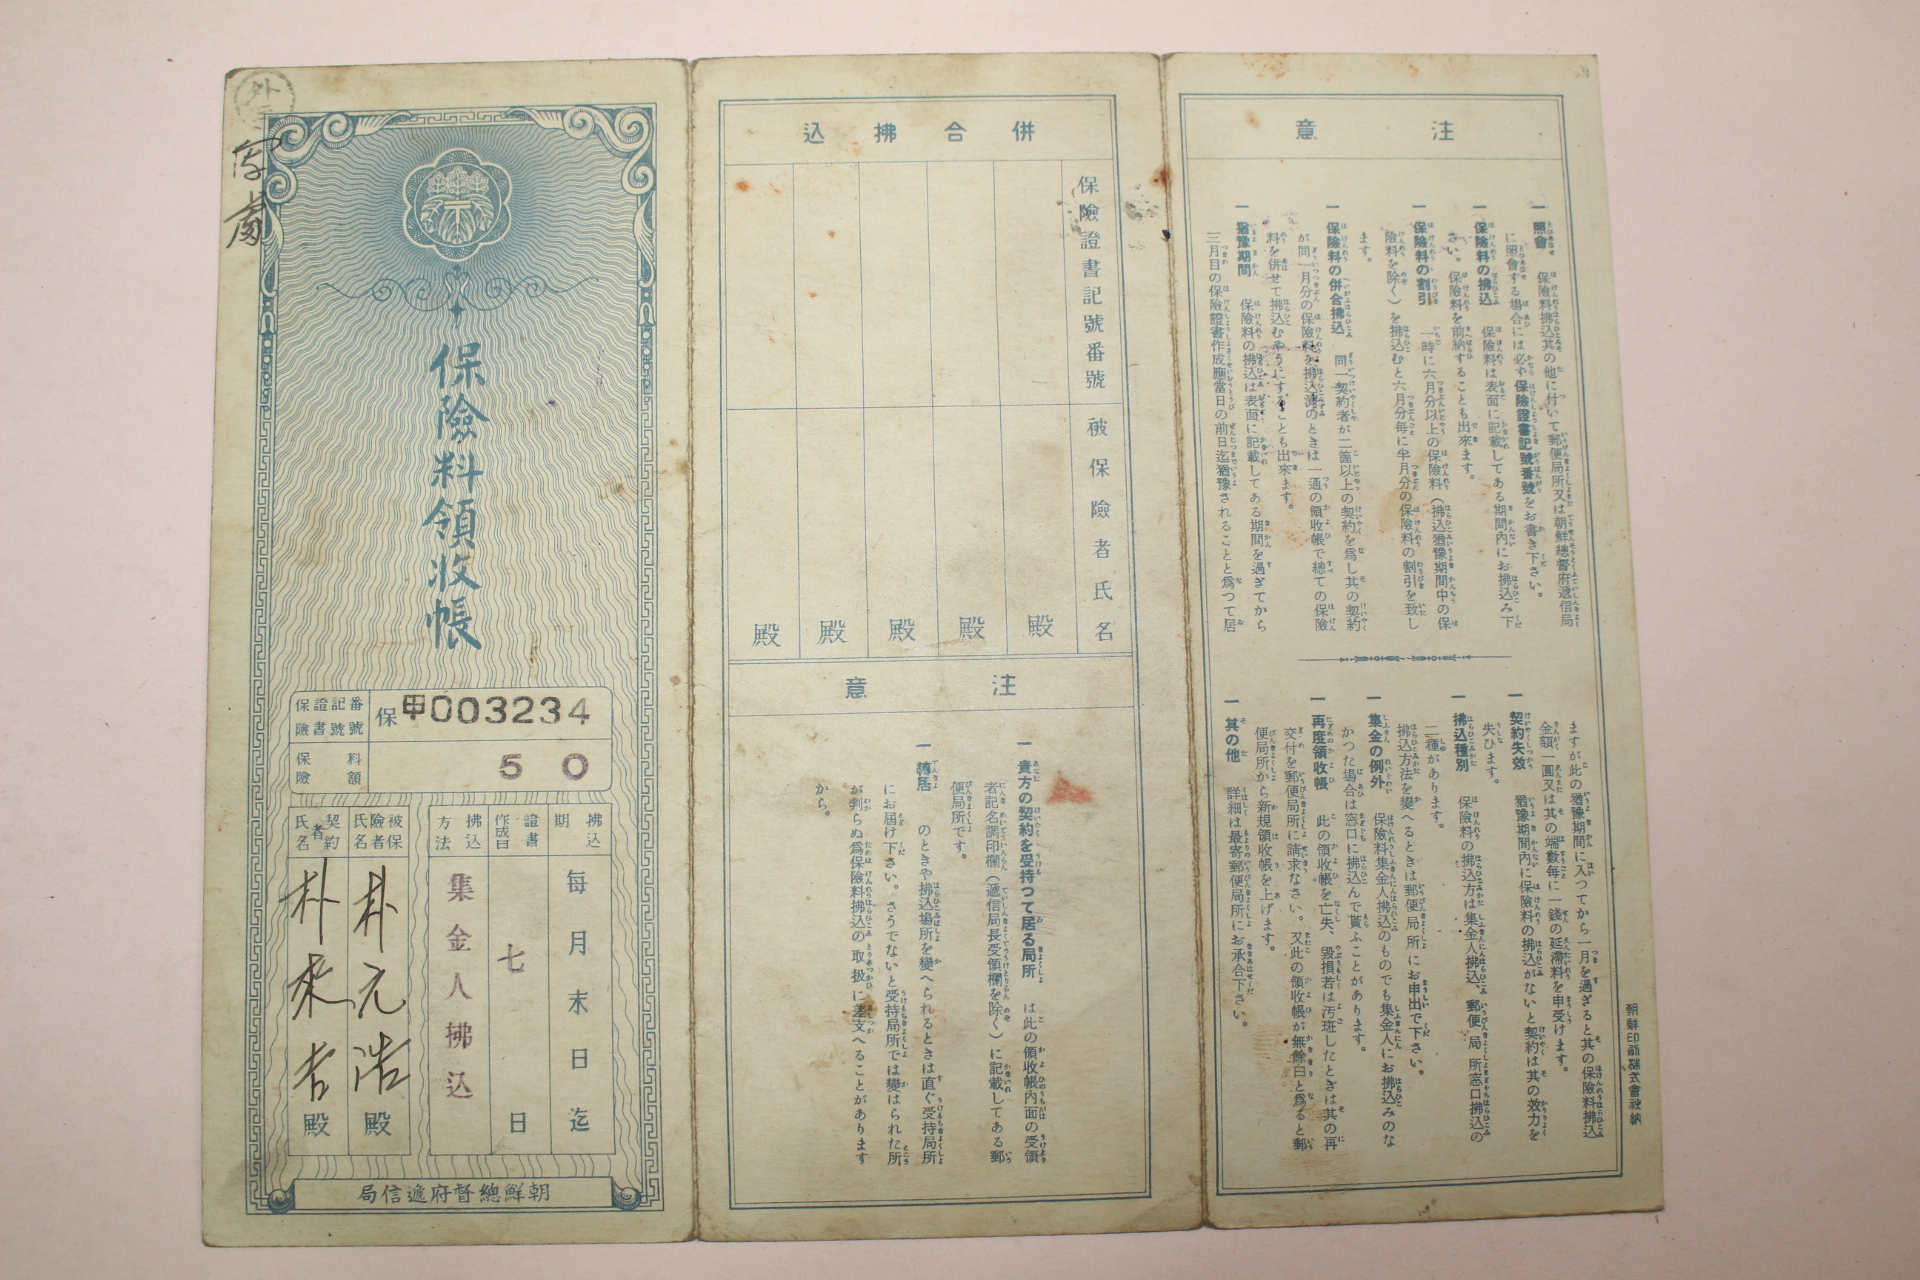 外
保險料領收帳
保險證書記號番號
保甲003234
保險料額
50
拂込期
每月末日迄
證書作成日
七日
拂込方法
集金人拂込
被保險者氏名
朴元浩殿
契約者氏名
朴来吉殿
朝鮮總督府遞信局
併合拂込
保險證書記號番號
被保險者氏名
殿
殿
殿
殿
殿
注意
一 貴方の契約を受持つて居る局所 は此の領收帳內面の受領
者記名調印欄(遞信局長受領欄を除く)に記載してある郵
便局所です。
一 轉居 のときや拂込場所を變へられるときは直ぐ受持局所
にお屆け下さい。さうでないと受持局所では變はられた所
が判らぬ爲保險料拂込の取扱に差支へることがあります
から。
注意
一 照會 保險料拂込其の他に付いて郵便局所又は朝鮮總督府遞信局
に照會する場合には必ず保險證書記號番號をお書き下さい。
一 保險料の拂込 保險料は表面に記載してある期間內にお拂込み下
さい。保險料を前納することも出來ます。
一 保險料の割引 一時に六月分以上の保險料(拂込猶豫期間中の保
險料を除く)を拂込むと六月分每に半月分の保險料の割引を致し
ます。
一 保險料の併合拂込 同一契約者が二箇以上の契約を爲し其の契約
が同一月分の保險料を拂込濟のときは一通の領收帳で總ての保險
料を併せて拂込むやうにすることも出來ます。
一 猶豫期間 保險料の拂込は表面に記載してある期間を過ぎてから
三月目の保險證書作成應當日の前日迄猶豫されることと爲つて居
ますが此の猶豫期間に入つてから一月を過ぎると其の保險料拂込
金額一圓又は其の端數每に一錢の延滯料を申受けます。
一 契約失效 猶豫期間內に保險料の拂込がないと契約は其の效力を
失ひます。
一 拂込種別 保險料の拂込方は集金人拂込、郵便局所窓口拂込の
二種があります。
拂込方法を變へるときは郵便局所にお申出で下さい。
一 集金の例外 保險料集金人拂込のものでも集金人にお拂込みのな
かつた場合は窓口に拂込んで貰ふことがあります。
一 再度領收帳 此の領收帳を亡失、毀損若は汚斑したときは其の再
交付を郵便局所に請求なさい。又此の領收帳が無餘白と爲ると郵
便局所から新規領收帳を上げます。
一 其の他 詳細は最寄郵便局所にお承合下さい。
朝鮮印刷株式會社納